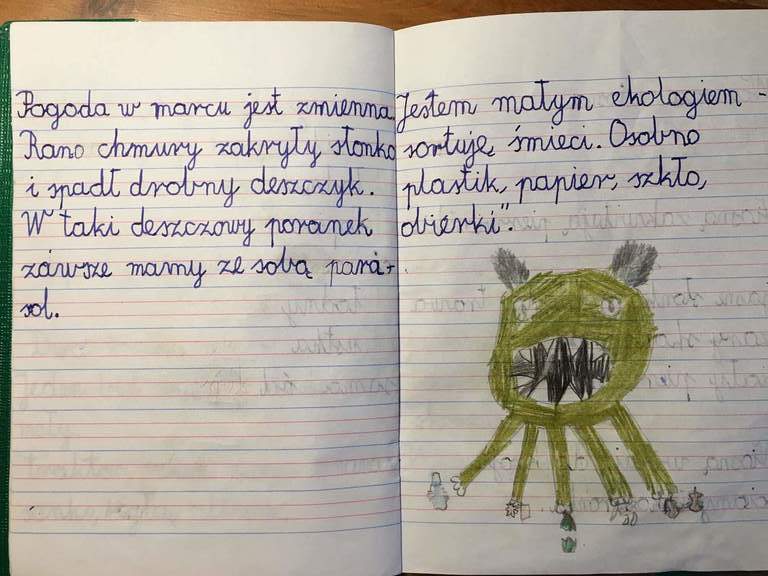 Pogoda w marcu jest zmienna.
Rano chmury zakryły słonko
i spadł drobny deszczyk.
W taki deszczowy poranek
záwsze mamy ze sobą para-
sol.
Jestem małym ekologiem -
sortuję śmieci. Osobno
plastik, papier, szkło,
obierki".